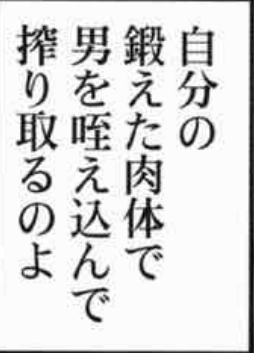 自分の
鍛えた肉体で
男を咥え込んで
搾り取るのよ